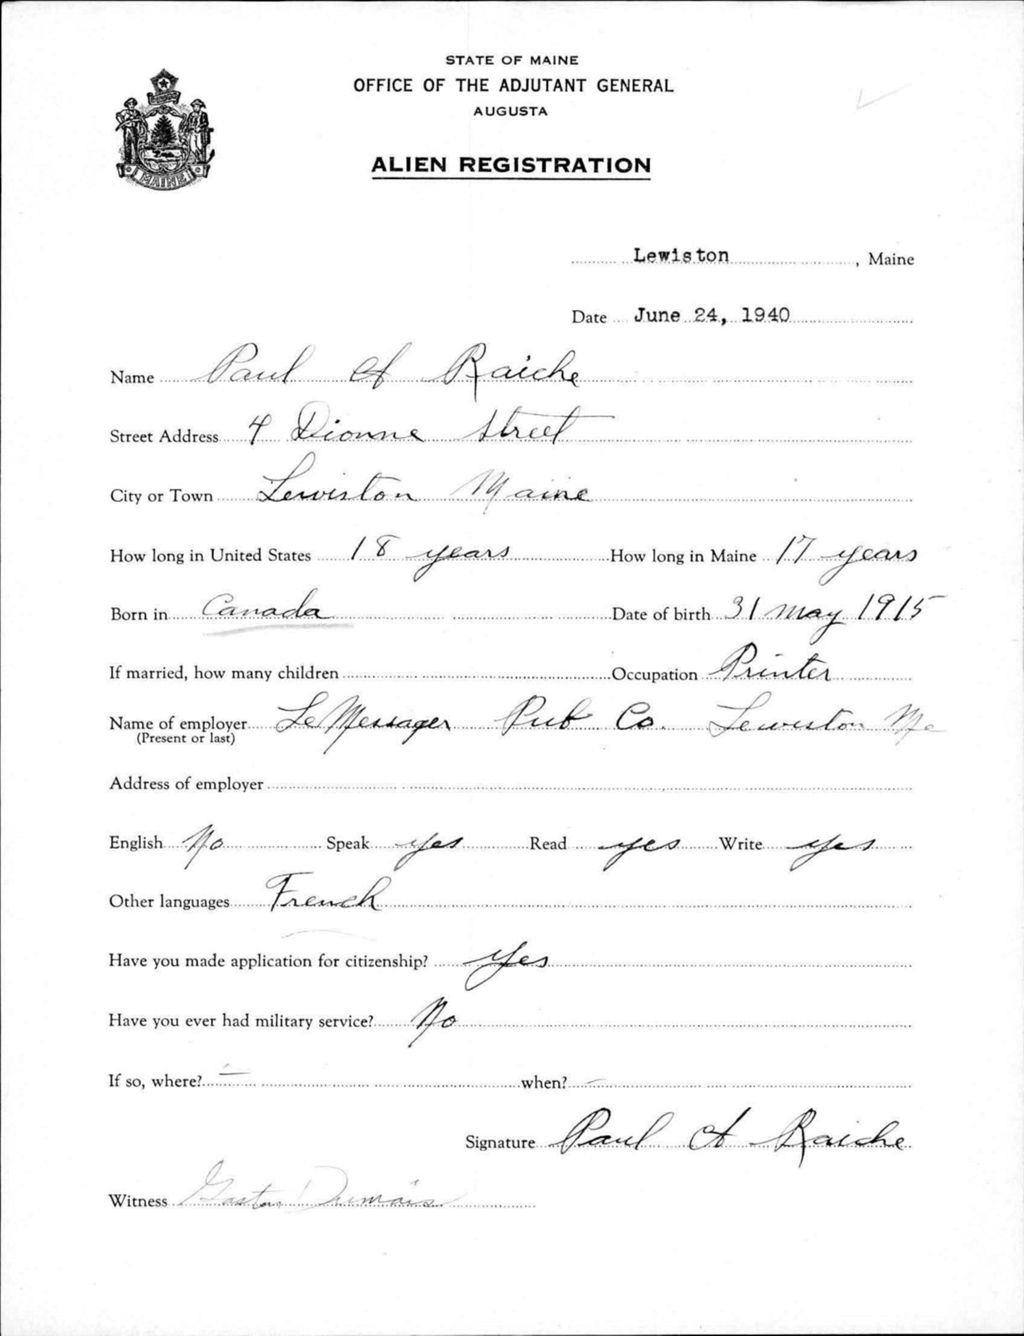 STATE OF MAINE
OFFICE OF THE ADJUTANT GENERAL
AUGUSTA
ALIEN REGISTRATION
MAINE
Lewiston, Maine
Date June 24, 1940
Name Paul A Raiche
Street Address 4 Dionne Street
City or Town Lewiston Maine
How long in United States 18 years How long in Maine 17 years
Born in Canada Date of birth 31 May 1915
If married, how many children Occupation Printer
Name of employer Le Messager Pub Co. Lewiston Me
(Present or last)
Address of employer
English No Speak yes Read yes Write yes
Other languages French
Have you made application for citizenship? Yes
Have you ever had military service? No
If so, where? – when? –
Signature Paul A Raiche
Witness Gaston Dumais